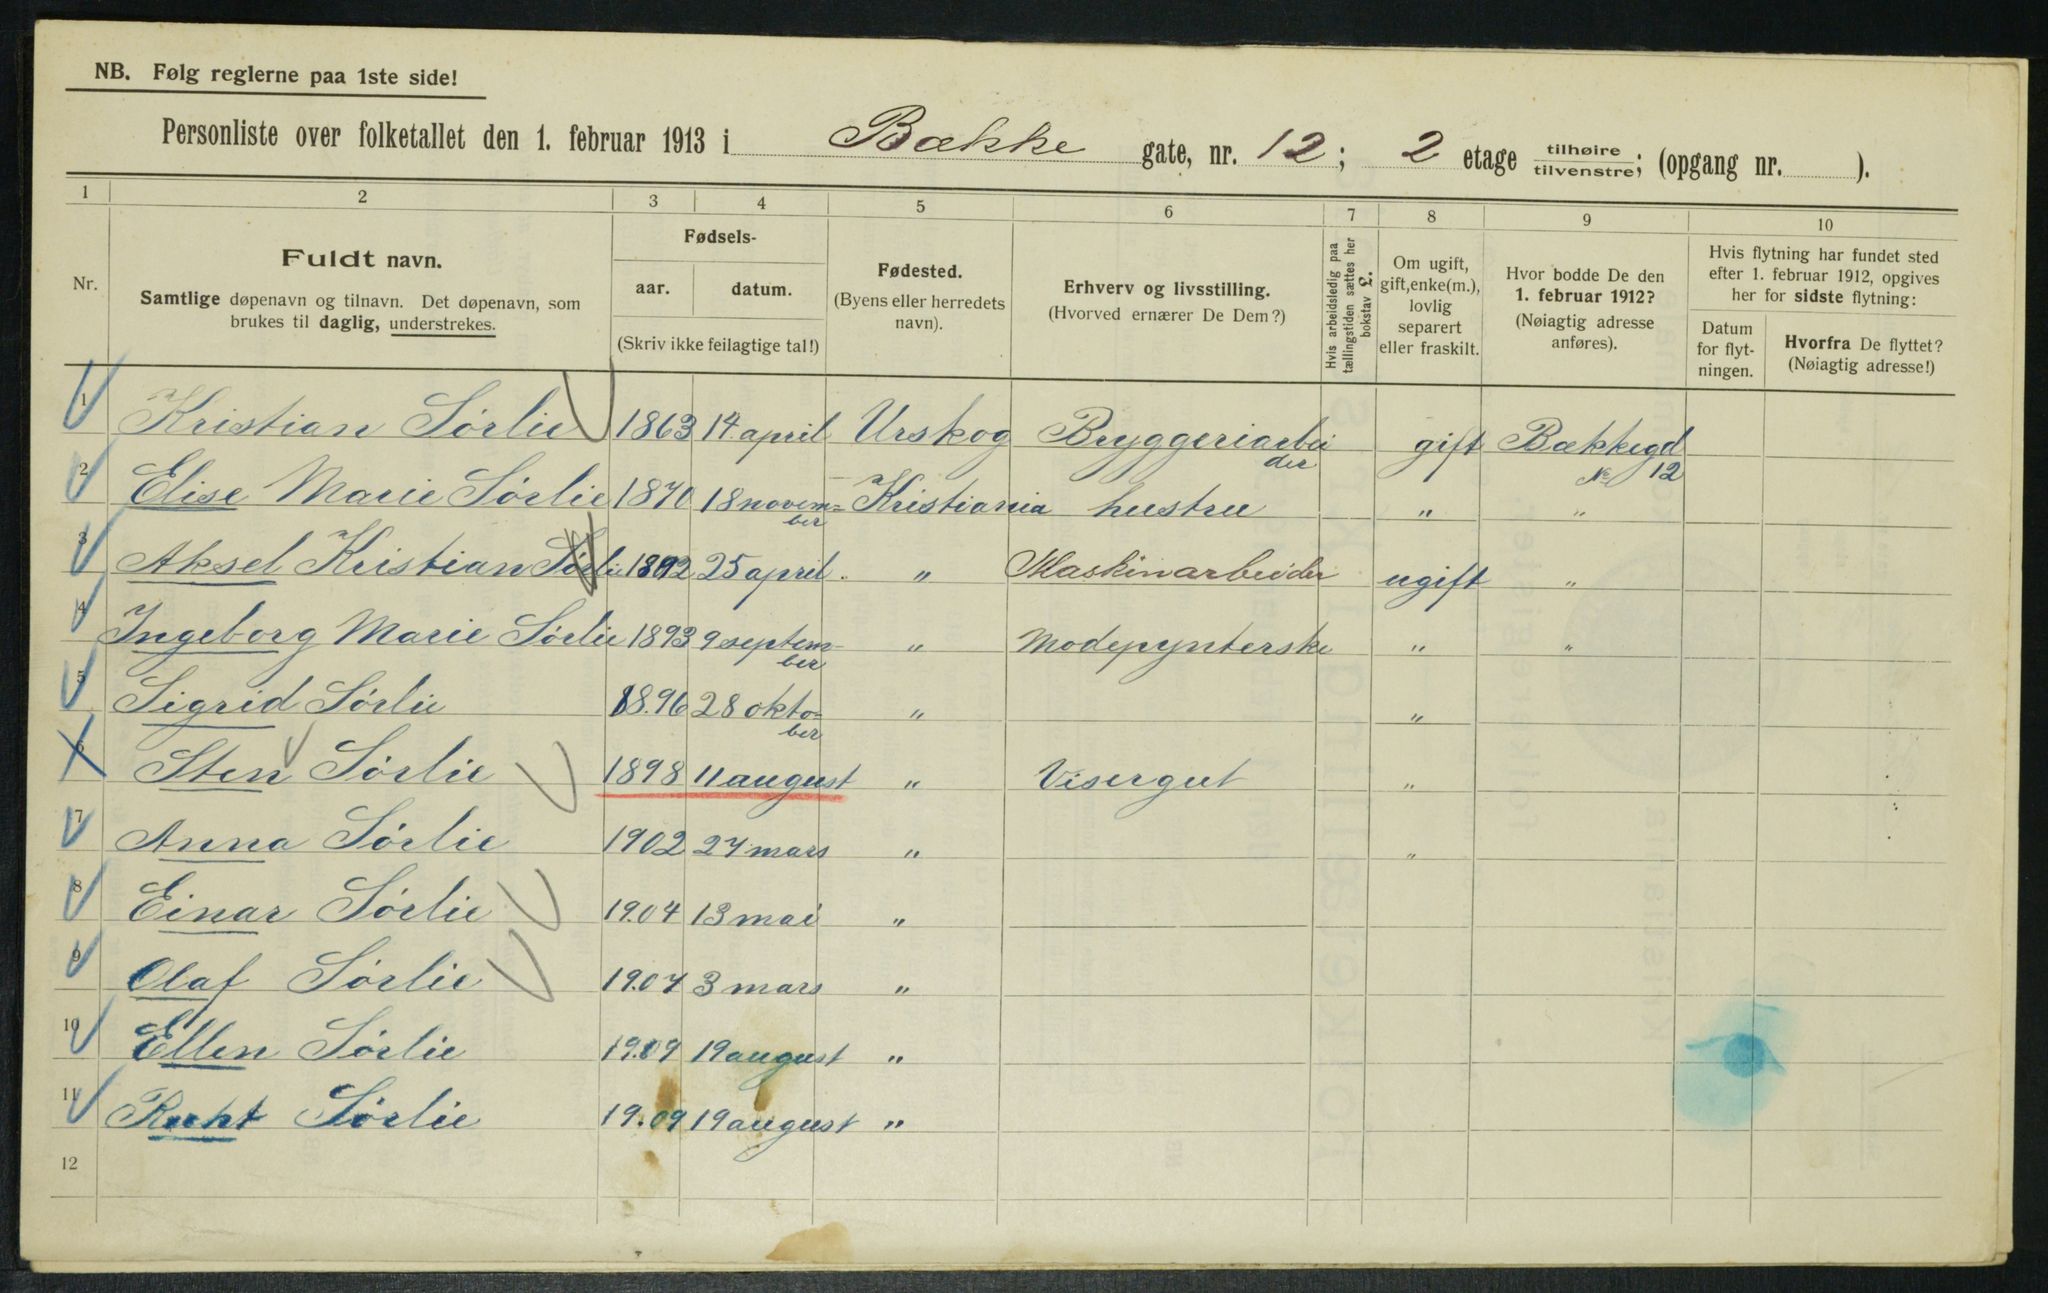 NB. Følg reglerne paa 1ste side!
Personliste over folketallet den 1. februar 1913 i Bække gate, nr. 12; 2 etage tilhøire tilvenstre; (opgang nr. ).
1 2 3 4 5 6 7 8 9 10
Nr.
Fuldt navn.
Samtlige døpenavn og tilnavn. Det døpenavn, som
brukes til daglig, understrekes.
Fødsels-
aar. datum.
(Skriv ikke feilagtige tal!)
Fødested.
(Byens eller herredets
navn).
Erhverv og livsstilling.
(Hvorved ernærer De Dem?)
Hvis arbeidsledig paa
tællingstiden sættes her
bokstav £.
Om ugift,
gift, enke(m.),
lovlig
separert
eller fraskilt.
Hvor bodde De den
1. februar 1912?
(Nøiagtig adresse
anføres).
Hvis flytning har fundet sted
efter 1. februar 1912, opgives
her for sidste flytning:
Datum
for flyt-
ningen.
Hvorfra De flyttet?
(Nøiagtig adresse!)
1 Kristian Sørlie 1863 14 april Urskog Bryggeriarbei der gift Bækkegd No 12
2 Elise Marie Sørlie 1870 18 novem= ber Kristiania hustru " "
3 Aksel Kristian Sørlie 1892 25 april " Maskinarbeider ugift "
4 Ingeborg Marie Sørlie 1893 9 septem= ber " Modepynterske " "
5 Sigrid Sørlie 18.96 28 okto= ber " "
6 Sten Sørlie 1898 11 august " Visergut "
7 Anna Sørlie 1902 27 mars " "
8 Einar Sørlie 19.04 13 mai "
9 Olaf Sørlie 19.07 3 mars "
10 Ellen Sørlie 19.09 19 august "
11 Ruht Sørlie 19.09 19 august "
12